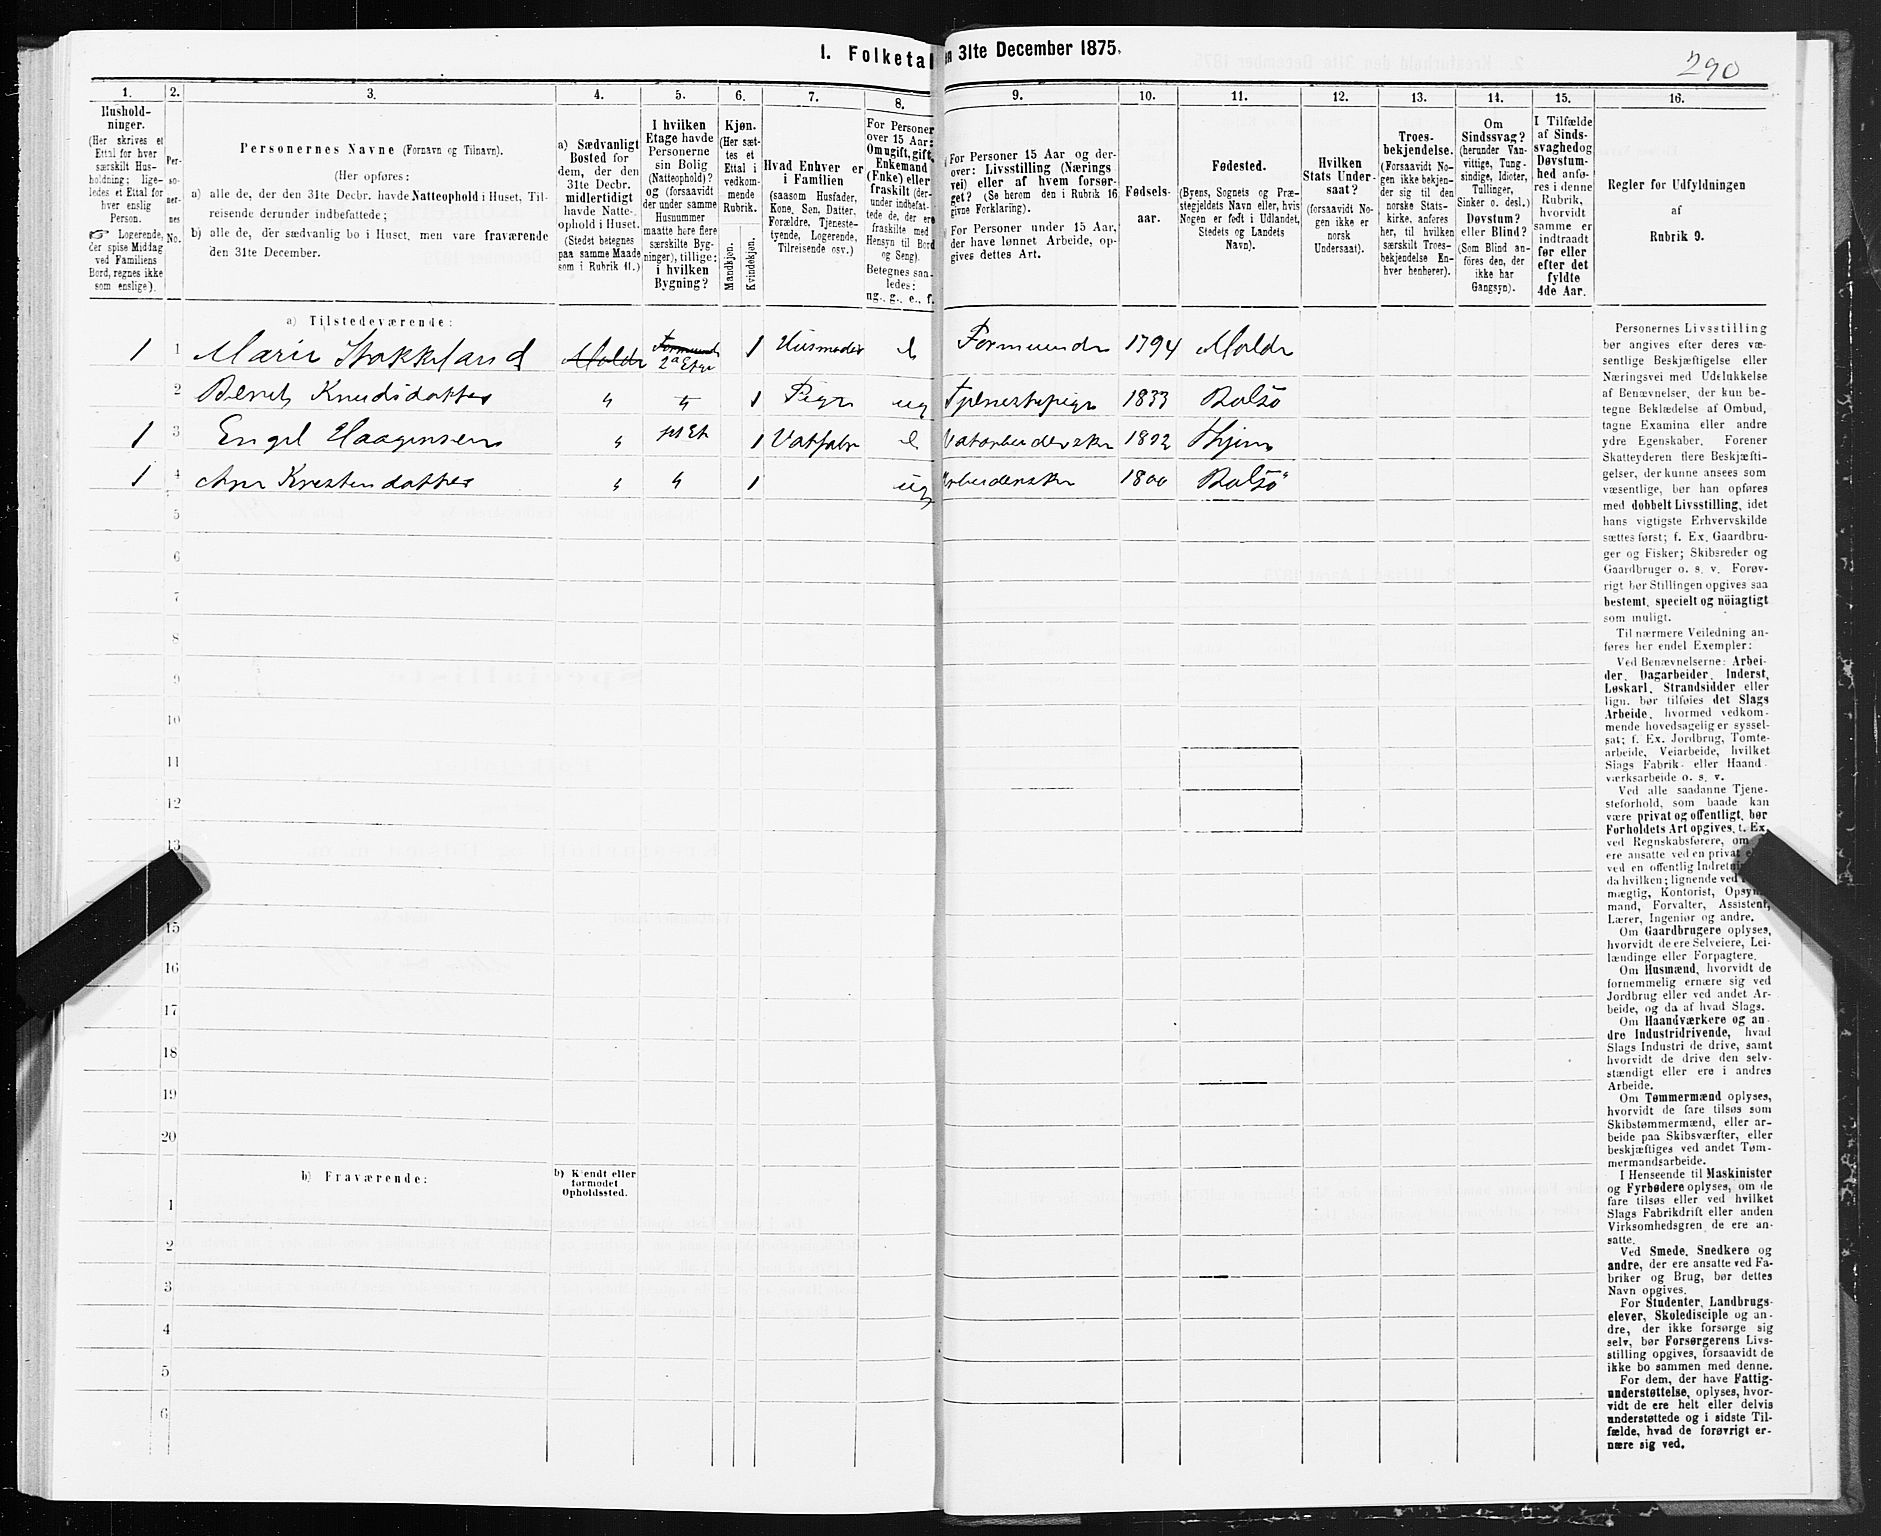 I. Folketal
en 31te December 1875.
290
1. 2. 3. 4. 5. 6. 7. 8. 9. 10. 11. 12. 13. 14. 15. 16.
Hushold-
ninger.
(Her skrives et
Ettal for hver
særskilt Hus-
holdning; lige-
ledes et Ettal for
hver enslig
Person.
☞ Logerende,
der spise Middag
ved Familiens
Bord, regnes ikke
som enslige).
Per-
so-
ner-
nes
No.
Personernes Navne (Fornavn og Tilnavn).
(Her opføres:
a) alle de, der den 31te Decbr. havde Natteophold i Huset, Til-
reisende derunder indbefattede;
b) alle de, der sædvanlig bo i Huset, men vare fraværende
den 31te December.
a) Sædvanligt
Bosted for
dem, der den
31te Decbr.
midlertidigt
havde Natte-
ophold i Huset.
(Stedet betegnes
paa samme Maade
som i Rubrik 11.)
I hvilken
Etage havde
Personerne
sin Bolig
(Natteophold)?
og (forsaavidt
der under samme
Husnummer
maatte høre flere
særskilte Byg-
ninger), tillige:
i hvilken
Bygning?
Kjøn.
(Her sæt-
tes et
Ettal i
vedkom-
mende
Rubrik.
Mandkjøn.
Kvindekjøn.
Hvad Enhver er
i Familien
(saasom Husfader,
Kone, Søn, Datter,
Forældre, Tjeneste-
tyende, Logerende,
Tilreisende osv.)
For Personer
over 15 Aar:
Om ugift, gift,
Enkemand
(Enke) eller
fraskilt (der-
under indbefat-
tede de, der ere
fraskilte med
Hensyn til Bord
og Seng).
Betegnes saa-
ledes:
ug., g., e., f.
For Personer 15 Aar og der-
over: Livsstilling (Nærings
vei) eller af hvem forsør-
get? (Se herom den i Rubrik 16
givne Forklaring).
For Personer under 15 Aar,
der have lønnet Arbeide, op-
gives dettes Art.
Fødsels-
aar.
Fødested.
(Byens, Sognets og Præ-
stegjeldets Navn eller, hvis
Nogen er født i Udlandet,
Stedets og Landets
Navn).
Hvilken
Stats Under-
saat?
(forsaavidt No-
gen ikke er
norsk
Undersaat).
Troes-
bekjendelse.
(Forsaavidt No-
gen ikke bekjen-
der sig til den
norske Stats-
kirke, anføres
her, til hvilken
særskilt Troes-
bekjendelse En-
hver henhører).
Om
Sindssvag?
(herunder Van-
vittige, Tung-
sindige, Idioter,
Tullinger,
Sinker o. desl.)
Døvstum?
eller Blind?
(Som Blind an-
føres den, der
ikke har
Gangsyn).
I Tilfælde
af Sinds-
svaghed og
Døvstum-
hed anfø-
res i denne
Rubrik,
hvorvidt
samme er
indtraadt
før eller
efter det
fyldte
4de Aar.
Regler for Udfyldningen
af
Rubrik 9.
a) Tilstedeværende:
1 1 Marie Stokkeland Molde 2a Etge 1 Husmoder e Formuende 1794 Molde
2 Beret Knudsdatter " " 1 Pige ug Tjenestepige 1833 Bolsø
1 3 Engel Haagensen " 1st Et 1 Vatfabr e Vatarbeiderske 1822
1 4 Ane Kristensdatter " " 1 ug Arbeiderske 1800 Bolsø
5
6
7
8
9
10
11
12
13
15
16
17
18
19
20
b) Fraværende:
b) Kjendt eller
formodet
Opholdssted.
1
2
3
4
5
6
Personernes Livsstilling
bør angives efter deres væ-
sentlige Beskjæftigelse eller
Næringsvei med Udelukkelse
af Benævnelser, der kun be-
tegne Beklædelse af Ombud,
tagne Examina eller andre
ydre Egenskaber. Forener
Skatteyderen flere Beskjæfti-
gelser, der kunne ansees som
væsentlige, bør han opføres
med dobbelt Livsstilling, idet
hans vigtigste Erhvervskilde
sættes først; f. Ex. Gaardbru-
ger og Fisker; Skibsreder og
Gaardbruger o. s. v. Forøv-
rigt bør Stillingen opgives saa
bestemt, specielt og nöiagtigt
som muligt.
Til nærmere Veiledning an-
føres her endel Exempler:
Ved Benævnelserne: Arbei-
der, Dagarbeider, Inderst,
Løskarl, Strandsidder eller
lign. bør tilføies det Slags
Arbeide, hvormed vedkom-
mende hovedsagelig er syssel-
sat; f. Ex. Jordbrug, Tomte-
arbeide, Veiarbeide, hvilket
Slags Fabrik- eller Haand-
værksarbeide o. s. v.
Ved alle saadanne Tjene-
steforhold, som baade kan
være privat og offentligt, bør
Forholdets Art opgives, t. Ex.
ved Regnskabsførere, om
ere ansatte ved en privat
ved en offentlig
da hvilken; lignende ved
mægtig, Kontorist,
mand, Forvalter, Assistent,
Lærer, Ingeniør og andre.
Om Gaardbrugere oplyses,
hvorvidt de ere Selveiere, Lei-
lændinge eller Forpagtere.
Om Husmænd, hvorvidt de
fornemmelig ernære sig ved
Jordbrug eller ved andet Ar-
beide, og da af hvad Slags.
Om Haandværkere og an-
dre Industridrivende, hvad
Slags Industri de drive, samt
hvorvidt de drive den selv-
stændigt eller ere i andres
Arbeide.
Om Tømmermænd oplyses,
hvorvidt de fare tilsøs som
Skibstømmermænd, eller ar-
beide paa Skibsværfter, eller
beskjæftiges ved andet Tøm-
mermandsarbeide.
I Henseende til Maskinister
og Fyrbødere oplyses, om de
fare tilsøs eller ved hvilket
Slags Fabrikdrift eller anden
Virksomhedsgren de ere an-
satte.
Ved Smede, Snedkere og
andre, der ere ansatte ved Fa-
briker og Brug, bør dettes
Navn opgives.
For Studenter, Landbrugs-
elever, Skoledisciple og an-
dre, der ikke forsørge sig
selv, bør Forsørgerens Livs-
stilling opgives, forsaavidt de
ikke bo sammen med denne.
For dem, der have Fattig-
understøttelse, oplyses, hvor-
vidt de ere helt eller delvis
understøttede og i sidste Til-
fælde, hvad de forøvrigt er-
nære sig ved.